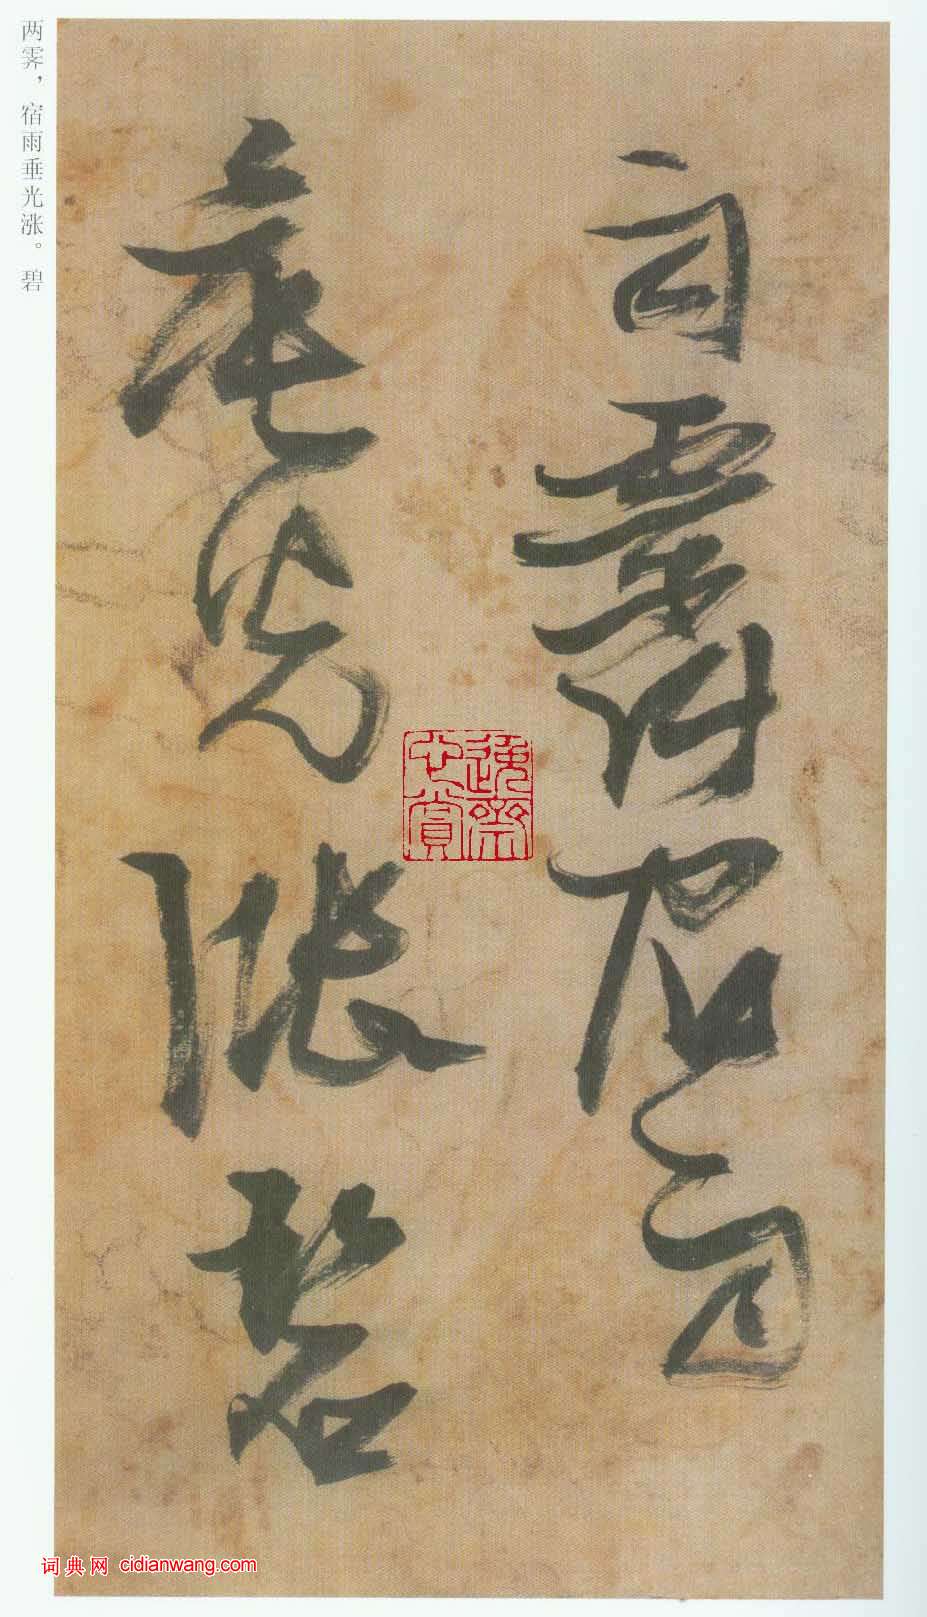 霽
垂光漲碧
两霁，宿雨垂光涨。碧
词典网 cidianwang.com